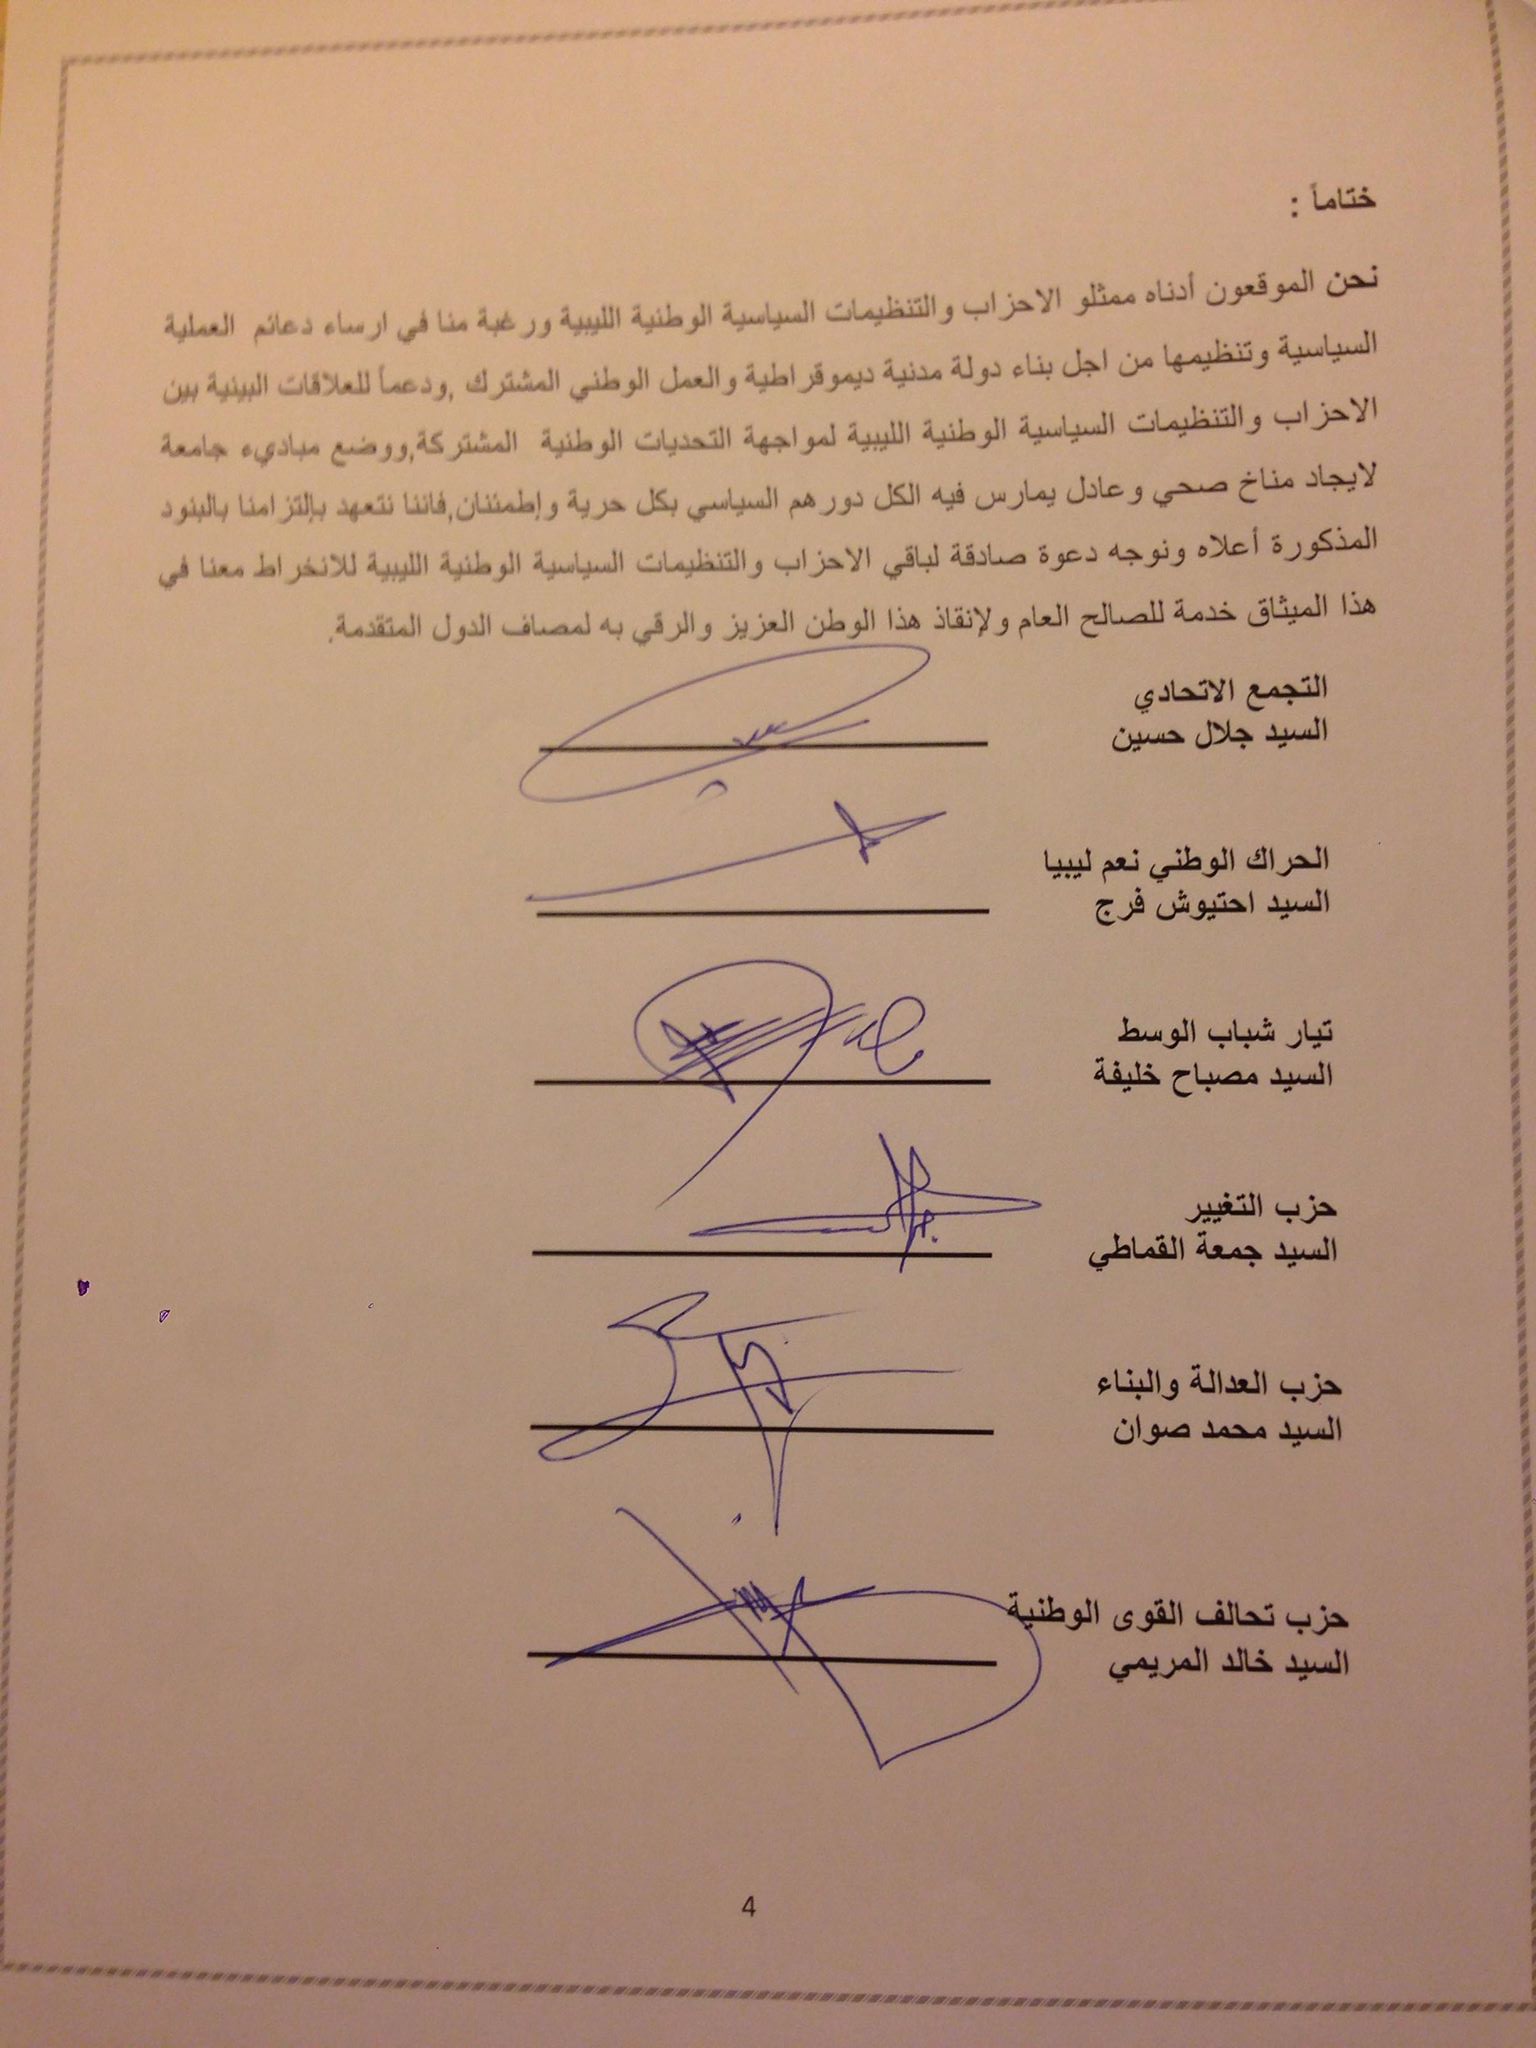 ختاماً :
نحن الموقعون أدناه ممثلو الاحزاب والتنظيمات السياسية الوطنية الليبية ورغبة منا في ارساء دعائم العملية
السياسية وتنظيمها من اجل بناء دولة مدنية ديموقراطية والعمل الوطني المشترك ,ودعماً للعلاقات البينية بين
الاحزاب والتنظيمات السياسية الوطنية الليبية لمواجهة التحديات الوطنية المشتركة,ووضع مباديء جامعة
لايجاد مناخ صحي وعادل يمارس فيه الكل دورهم السياسي بكل حرية وإطمئنان,فاننا نتعهد بإلتزامنا بالبنود
المذكورة أعلاه ونوجه دعوة صادقة لباقي الاحزاب والتنظيمات السياسية الوطنية الليبية للانخراط معنا في
هذا الميثاق خدمة للصالح العام ولإنقاذ هذا الوطن العزيز والرقي به لمصاف الدول المتقدمة.
التجمع الاتحادي
السيد جلال حسين
الحراك الوطني نعم ليبيا
السيد احتيوش فرج
تيار شباب الوسط
السيد مصباح خليفة
حزب التغيير
السيد جمعة القماطي
حزب العدالة والبناء
السيد محمد صوان
حزب تحالف القوى الوطنية
السيد خالد المريمي
4